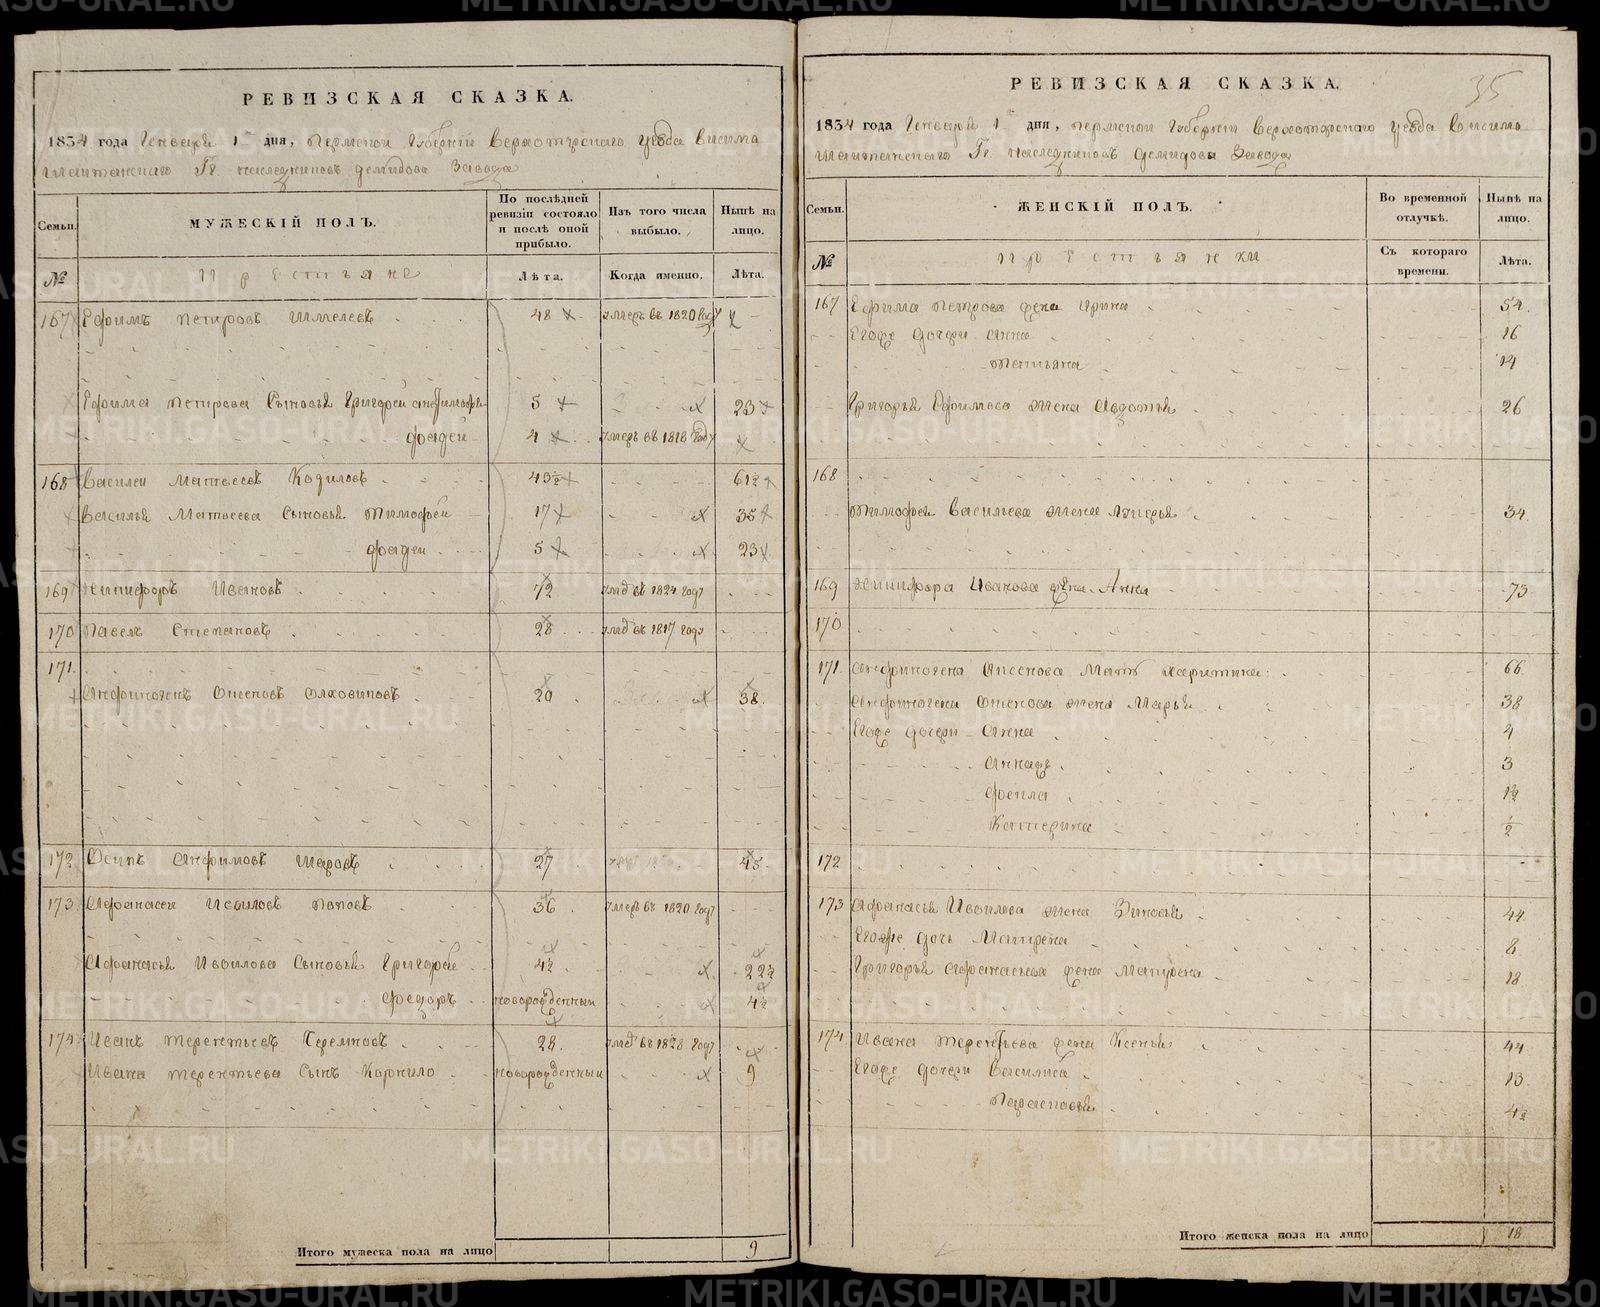 РЕВИЗСКАЯ СКАЗКА.
1834 года Генваря 1 дня, Пермской Губернии Верхотурского уезда Висимо
Шайтанского Гг. наследников Демидова Завода
Семьи. МУЖЕСКІЙ ПОЛЪ. По послѣдней ревизіи состояло и послѣ оной прибыло. Изъ того числа выбыло. Нынѣ на лицо.
№ Крестьяне Лѣта. Когда именно. Лѣта.
167 Ефимъ Петровъ Шмелевъ 48 умеръ въ 1820 году
Ефима Петрова Сыновья Григорей 5 23
Фадей 4 умеръ въ 1818 году
168 Василей Матвеевъ Копыловъ 43½ 61½
Василья Матвеева Сыновья Тимофей 17 35
Фадей 5 23
169 Никифоръ Ивановъ 72 въ 1824 году
170 Павелъ Степановъ 28 въ 1817 году
171.
Анфиногенъ 20 38
172 Осипъ Анфимовъ Шаровъ 27 45
173 Афанасей Поповъ 36 умеръ въ 1820 году
Афанасья Сыновья Григорей 4½ 22½
Федоръ новорожденный 4½
174 Иванъ Терентьевъ 28. въ 1828 году
Ивана Терентьева Сынъ Корнило новорожденный 9
Итого мужеска пола на лицо 9
35
РЕВИЗСКАЯ СКАЗКА.
1834 года Генваря 1 дня, Пермской Губернии Верхотурского уезда Висимо
Шайтанского Гг. наследников Демидова Завода
Семьи. ЖЕНСКІЙ ПОЛЪ. Во временной отлучкѣ. Нынѣ на лицо.
№ Крестьянки Съ котораго времени. Лѣта.
167 Ефима Петрова жена Ирина 54.
Егоже дочери Анна 16
Татьяна 14
Григорья Ефимова жена Авдотья 26
168
Тимофея Васильева жена Лукерья 34
169 Никифора Иванова жена Анна 73
170
171. Анфиногена Мать Харитина 66
Анфиногена жена Марья 38
Егоже дочери Анна 4
3
Фекла 1½
Катерина ½
172
173 Афанасья жена Зиновья 44
Егоже дочь Матрена 8
Григорья Афанасьева жена Матрена 18
174 Ивана Терентьева жена Ксенья 44
Егоже дочери Василиса 13
Парасковья 4½
Итого женска пола на лицо 18.
METRIKI.GASO-URAL.RU